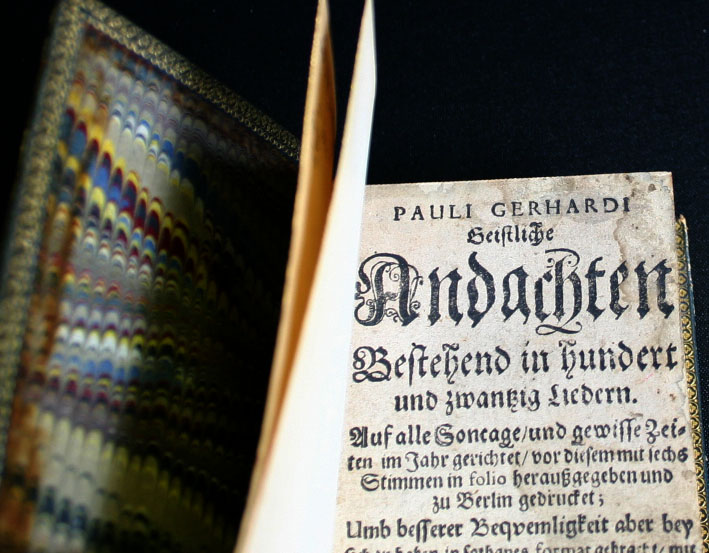 PAULI GERHARDI
Geistliche
Andachten
Bestehend in hundert
und zwantzig Liedern.
Auf alle Sontage/und gewisse Zei-
ten im Jahr gerichtet/vor diesem mit sechs
Stimmen in folio heraußgegeben und
zu Berlin gedrucket;
Umb besserer Beqvemligkeit aber bey
in format gebracht/ mit